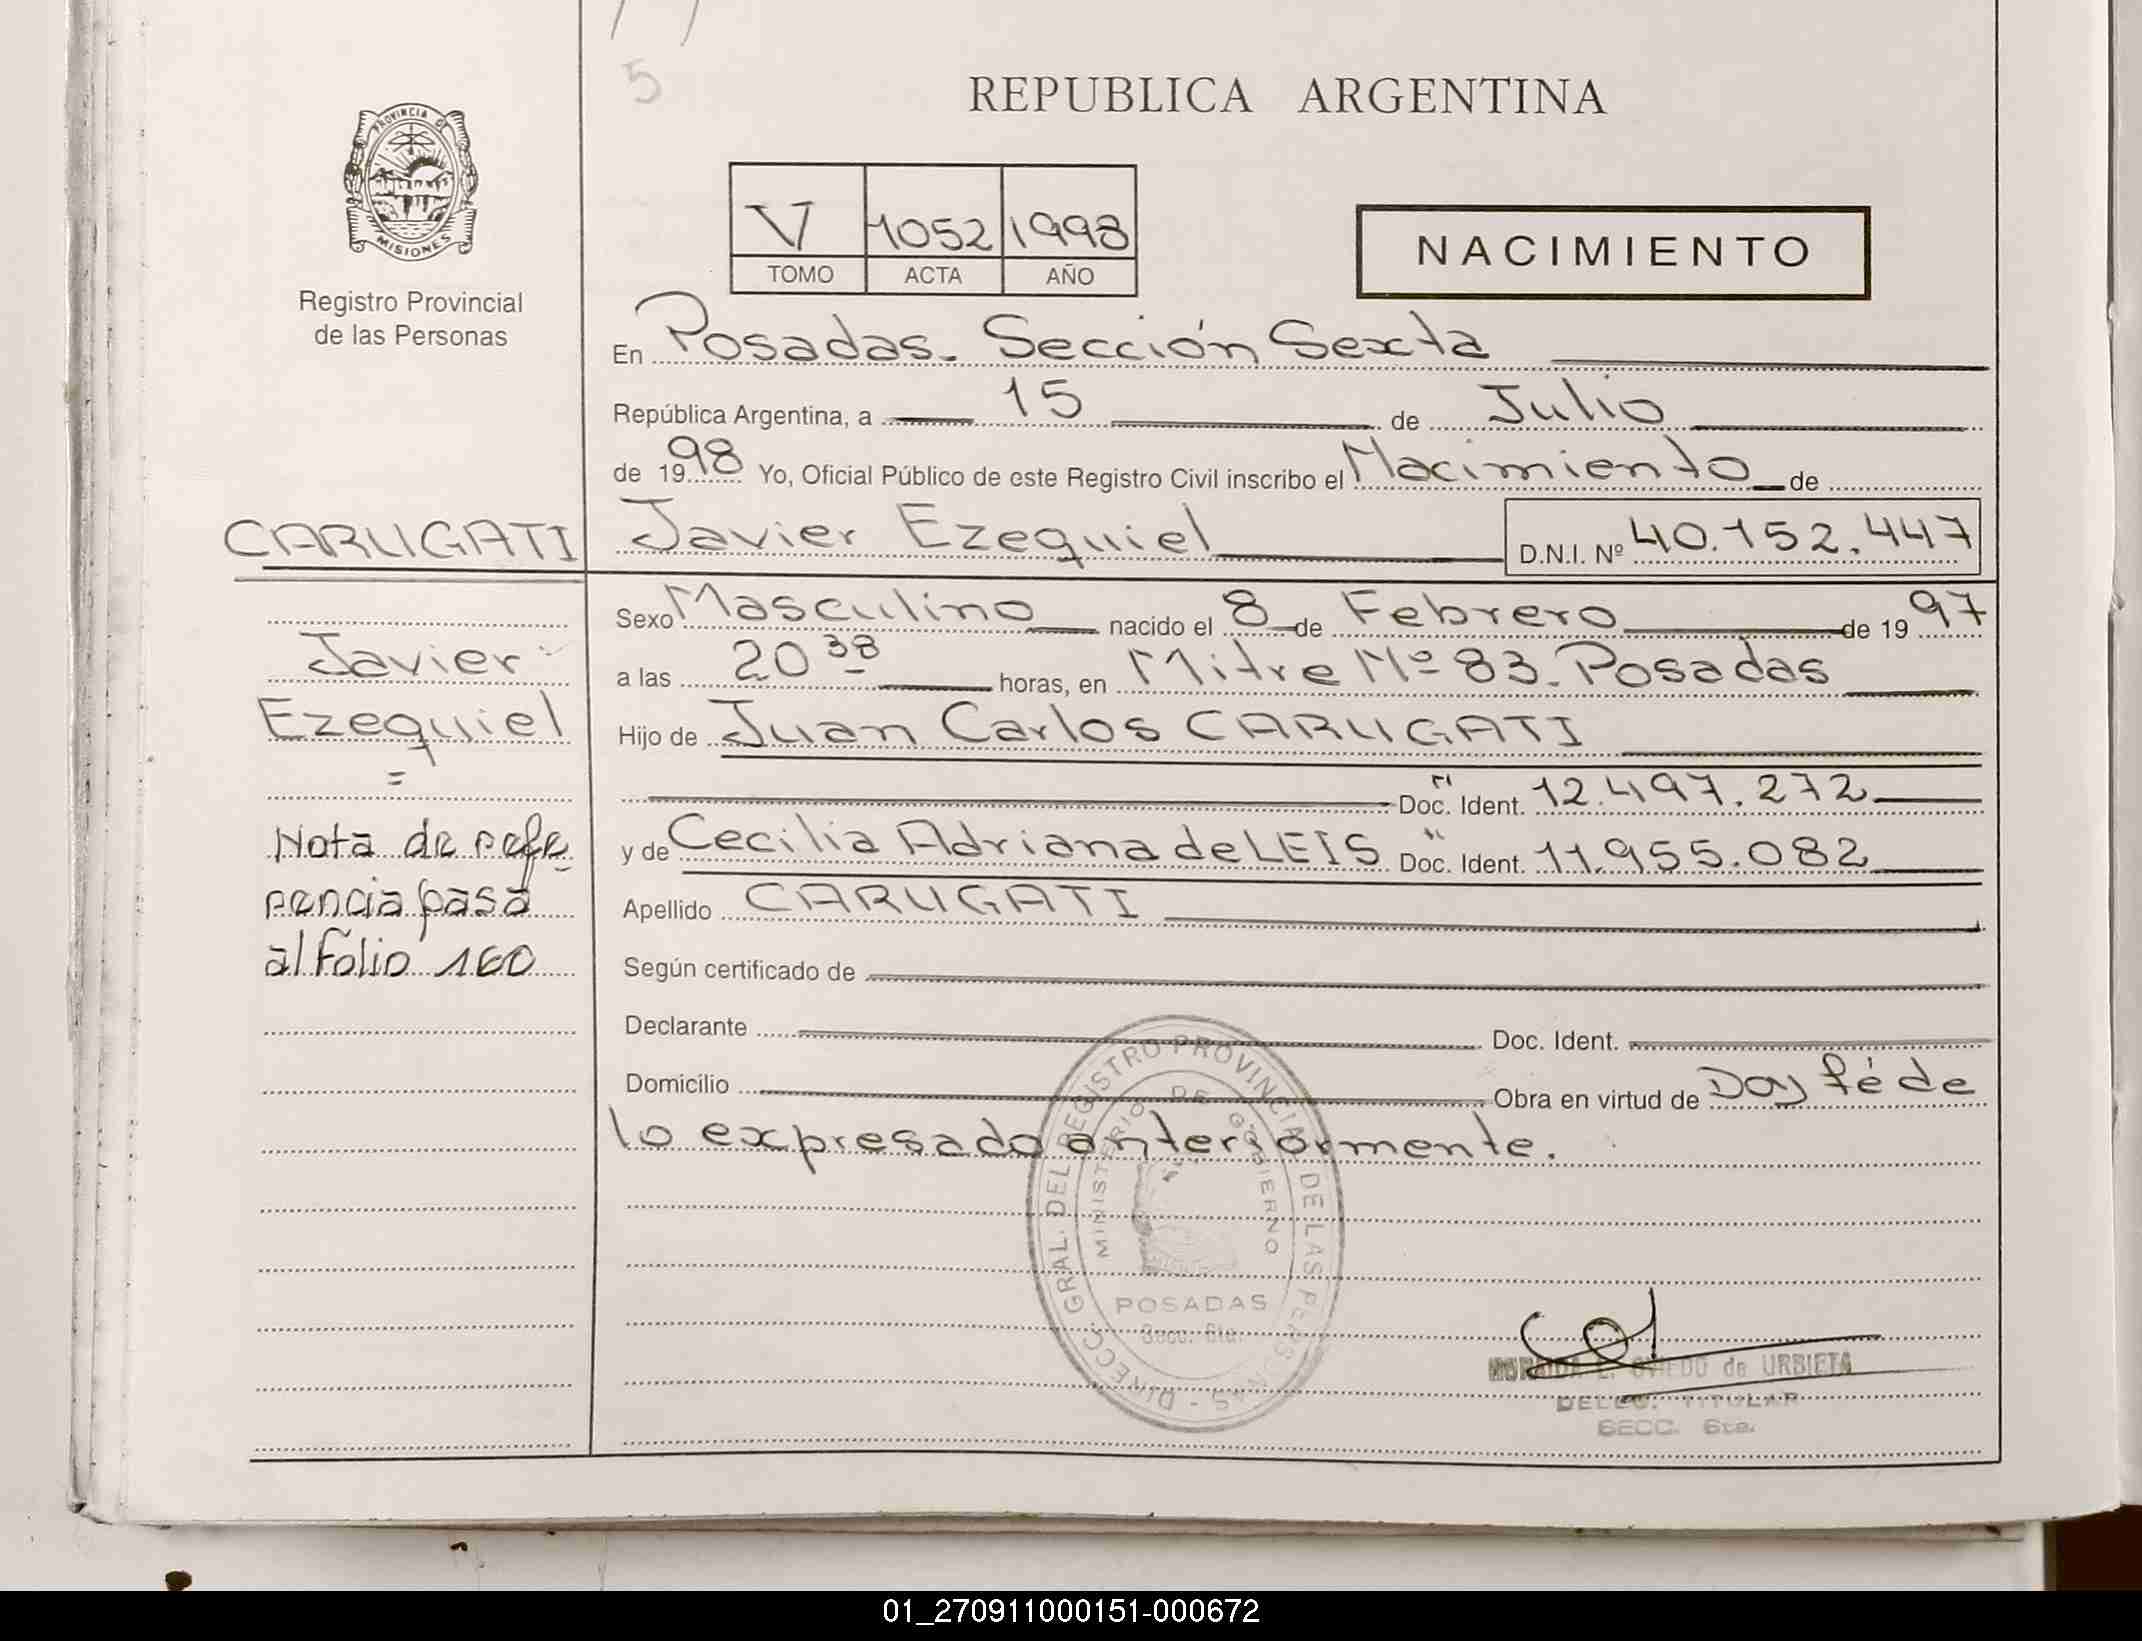 5
REPUBLICA ARGENTINA
PROVINCIA DE
MISIONES
Registro Provincial
de las Personas
V 1052 1998
TOMO ACTA AÑO
NACIMIENTO
En Posadas. Sección Sexta
República Argentina, a 15 de Julio
de 1998 Yo, Oficial Público de este Registro Civil inscribo el Nacimiento de
CARUGATI Javier Ezequiel D.N.I. Nº 40.152.447
Sexo Masculino nacido el 8 de Febrero de 1997
Javier
a las 20 38 horas, en Mitre Nº 83. Posadas
Ezequiel
Hijo de Juan Carlos CARUGATI
=
" Doc. Ident. 12.497.272
Nota de refe
y de Cecilia Adriana de LEIS " Doc. Ident. 11.955.082
rencia pasa
Apellido CARUGATI
al Folio 160
Según certificado de
Declarante Doc. Ident.
Domicilio Obra en virtud de Doy fé de
lo expresado anteriormente.
DIRECC. GRAL. DEL REGISTRO PROVINCIAL DE LAS PERSONAS
MINISTERIO DE GOBIERNO
POSADAS
Secc. 6ta.
E. OVIEDO de URBIETA
DELEG. TITULAR
SECC. 6ta.
01_270911000151-000672